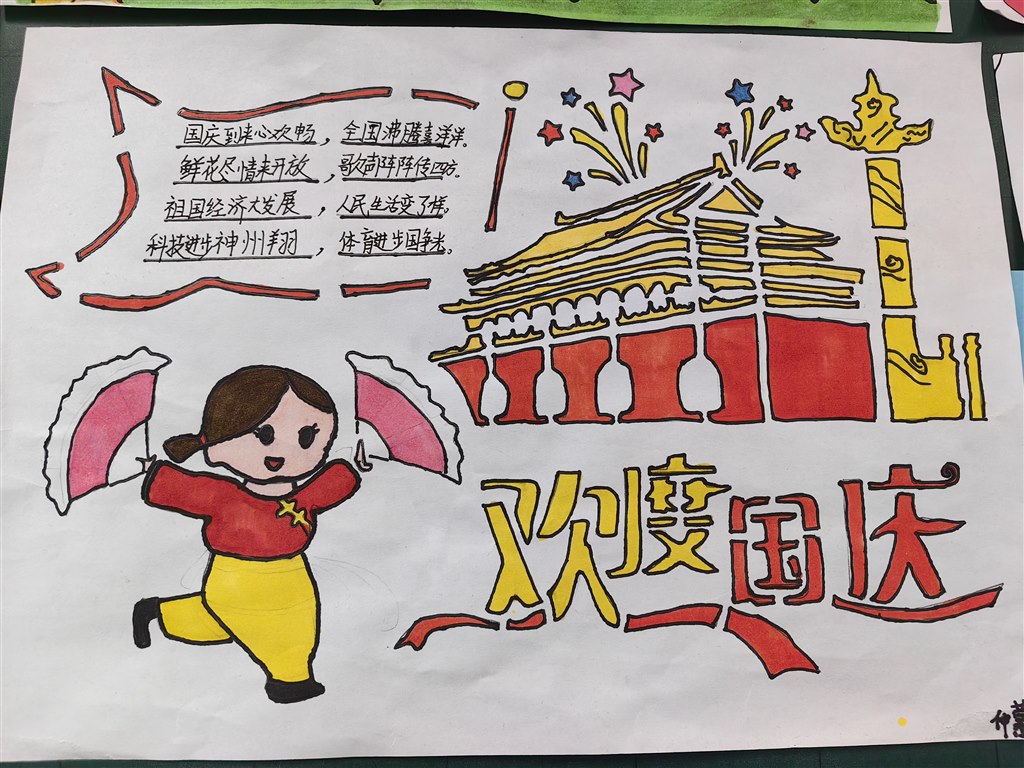 国庆到来心欢畅，全国沸腾喜洋洋。
鲜花尽情来开放，歌声阵阵传四方。
祖国经济大发展，人民生活变了样，
科技进步神州翔，体育进步国争光。
欢度国庆
仲